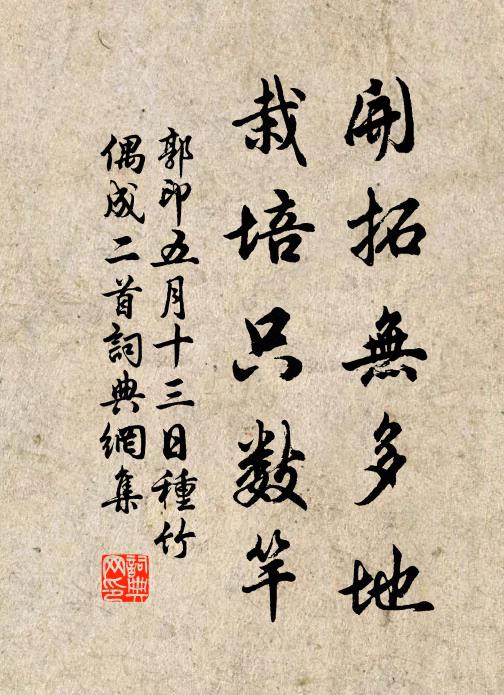 開拓無多地
栽培只數竿
郭印五月十三日種竹
偶成二首詞典網集
詞典
网印